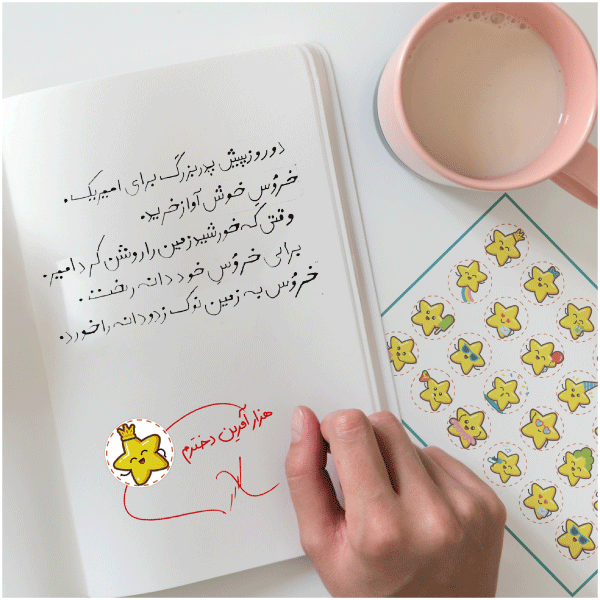 دو روز پیش پدربزرگ برای امیر یک.
خروُس خوش آواز خرید.
وقتی که خورشید زمین را روشن کرد امیر.
برای خروُس خود دانه ریخت.
خروُس به زمین نوک زد و دانه را خورد.
هزار آفرین دخترم